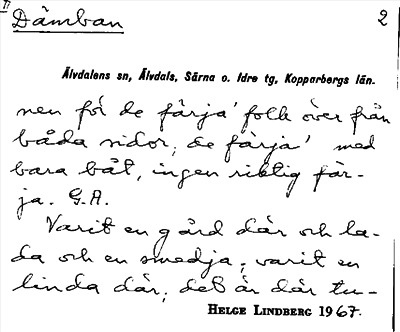 Dämban 2
Älvdalens sn, Älvdals, Särna o. Idre tg, Kopparbergs län.
nen för de färja' folk över från
båda sidor; de färja' med
bara båt, ingen riktig fär-
ja. G.A.
Varit en gård där och la-
da och en smedja; varit en
linda där; det är där tu-
HELGE LINDBERG 1967.